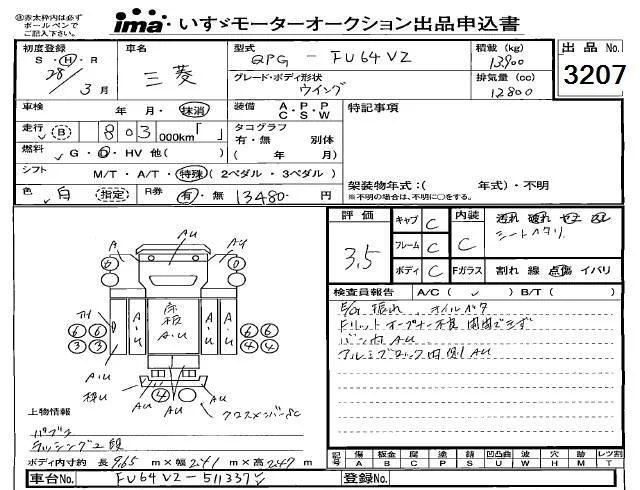 ㊟赤太枠内は必ずボールペンでご記入下さい。
ima いすゞモーターオークション出品申込書
初度登録 S・H・R 28/3月
車名 三菱
型式 QPG-FU64VZ
積載(kg) 13900
グレード・ボディ形状 ウイング
排気量(cc) 12800
出品No. 3207
車検 年・月・抹消
装備 A・P・P C・S・W
特記事項
走行 B 803 000km「 」
タコグラフ 有・無 別体 ( 年 月)
燃料 G・D・HV 他( )
シフト M/T・A/T・特殊( 2ペダル・3ペダル)
架装物年式:( 年式)・不明
※不明の場合は、不明に○をする。
色 白 (指定) R券 有・無 13480 円
評価 3.5
キャブ C
フレーム C
ボディ C
内装 C
シートヘタリ
Fガラス 割れ 線 点傷 イバリ
検査員報告 A/C( ✓ ) B/T( )
E/G振れ、オイルベタ
ドリットオープナー不良 開閉できず
バン内 AU
アルミブロック内側 AU
A AU AU
0 0
床板 A・U
A・U A・U
6 6 3 3
6 6 4 4
A・U AU AU
4
クロスメンバーSC
上物情報
ラッシング2段
ボディ内寸約 長 9.65 m×幅 2.41 m×高 2.47 m
記号 傷A 板金B 腐C 塗P 錆S 凹凸曲U 波W 穴H 跡M レツ割T
車台No. FU64VZ-511337
登録No.